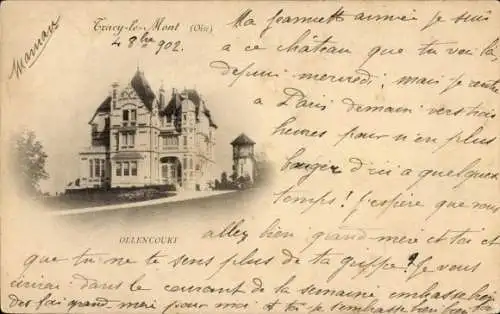 Tracy-le-Mont (Oise)
4 8bre 902.
Maman
Ma Jeannette aimée je suis
a ce château que tu vois là
depuis mercredi, mais je rentre
a Paris demain vers trois
heures pour n'en plus
bouger d'ici a quelques
temps! J'espère que vous
OLLENCOURT
allez bien grand-mère et toi et
que tu ne te sens plus de ta grippe? Je vous
écrirai dans le courant de la semaine embrasse bien
des fois grand mère pour moi et toi je t'embrasse bien bien